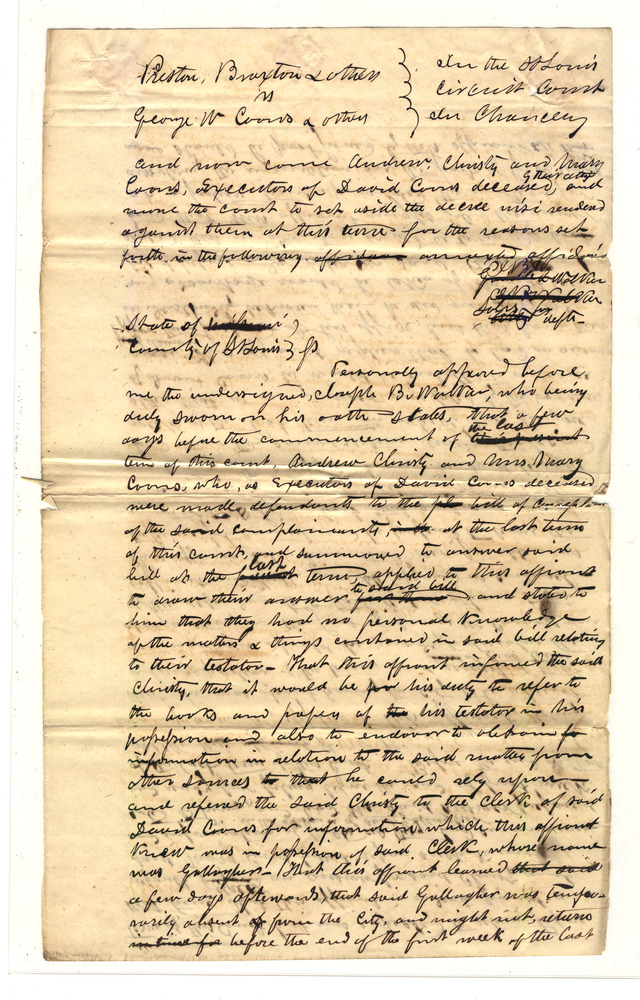 Preston, Braxton & others } In the St Louis
vs } Circuit Court
George W Coons & others } In Chancery
And now come Andrew Christy and Mary
Coons, Executors of David Coons deceased, and
move the court to set aside the decree nisi rendered
against them at this term for the reasons set
forth in the following annexed affidavit
Solrs for
defts
State of
County of St Louis } ss
Personally appeared before
me the undersigned, Joseph B. Walker, who being
duly sworn on his oath states, that a few
days before the commencement of the last
term of this court, Andrew Christy and Mrs Mary
Coons, who, as Executors of David Coons deceased
were made defendants to the bill of complaint
of the said complainants, at the last term
of this court, and summoned to answer said
bill at the last term, applied to this affiant
to draw their answer to said bill and stated to
him that they had no personal knowledge
of the matters & things contained in said bill relating
to their testator - That this affiant informed the said
Christy, that it would be his duty to refer to
the books and papers of his testator in his
possession and also to endeavor to obtain
information in relation to the said matters from
other sources that he could rely upon -
and referred the said Christy to the Clerk of said
David Coons for information which this affiant
knew was in possession of said Clerk, whose name
was Gallagher - That this affiant learned that said
a few days afterwards, that said Gallagher was tempo-
rarily absent from the City, and might not return
in time for before the end of the first week of the last